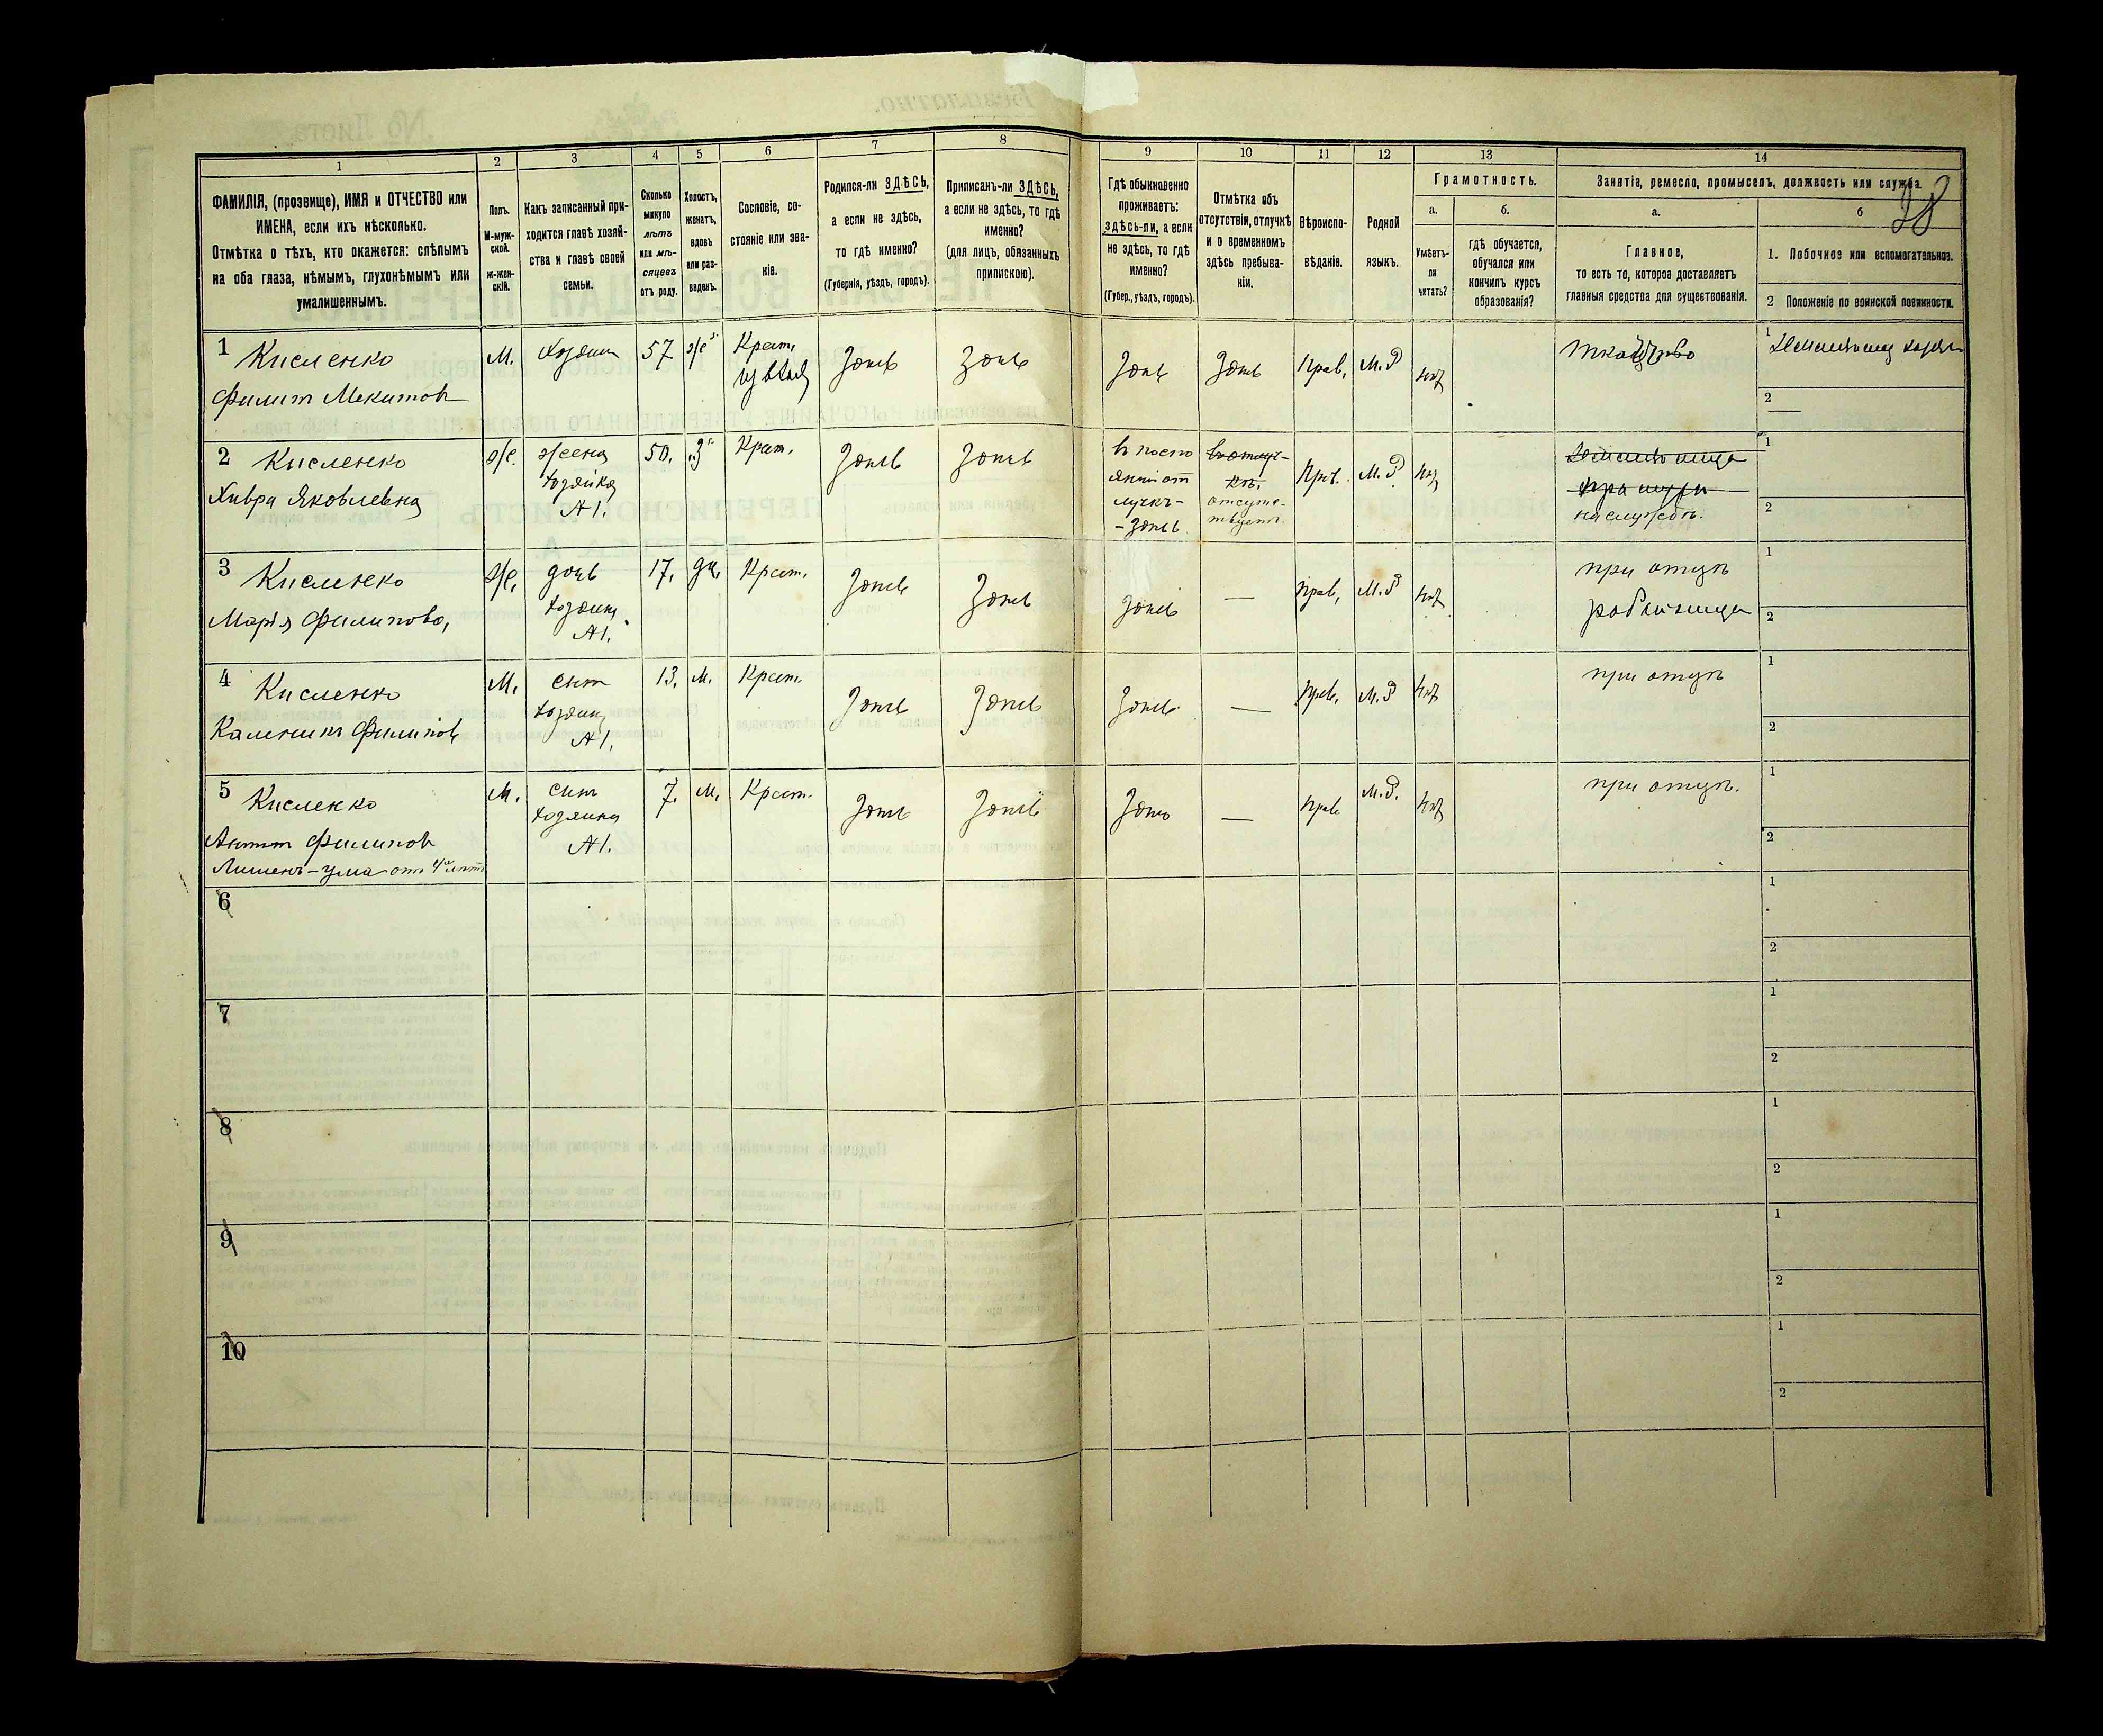 1 2 3 4 5 6 7 8 9 10 11 12 13 14
ФАМИЛІЯ, (прозвище), ИМЯ и ОТЧЕСТВО или
ИМЕНА, если ихъ нѣсколько.
Отмѣтка о тѣхъ, кто окажется: слѣпымъ
на оба глаза, нѣмымъ, глухонѣмымъ или
умалишеннымъ.
Полъ.
М-муж-
ской.
Ж-жен-
скій.
Какъ записанный при-
ходится главѣ хозяй-
ства и главѣ своей
семьи.
Сколько
минуло
лѣтъ
или мѣ-
сяцевъ
отъ роду.
Холостъ,
женатъ,
вдовъ
или раз-
веденъ.
Сословіе, со-
стояніе или зва-
ніе.
Родился-ли ЗДѢСЬ,
а если не здѣсь,
то гдѣ именно?
(Губернія, уѣздъ, городъ).
Приписанъ-ли ЗДѢСЬ,
а если не здѣсь, то гдѣ
именно?
(для лицъ, обязанныхъ
припискою).
Гдѣ обыкновенно
проживаетъ:
здѣсь-ли, а если
не здѣсь, то гдѣ
именно?
(Губер., уѣздъ, городъ).
Отмѣтка объ
отсутствіи, отлучкѣ
и о временномъ
здѣсь пребыва-
ніи.
Вѣроиспо-
вѣданіе.
Родной
языкъ.
Грамотность.
а.
Умѣетъ-
ли
читать?
б.
гдѣ обучается,
обучался или
кончилъ курсъ
образованія?
Занятіе, ремесло, промыселъ, должность или служба.
а.
Главное,
то есть то, которое доставляетъ
главныя средства для существованія.
б
1. Побочное или вспомогательное.
2 Положеніе по воинской повинности.
1 Кисленко
М.
57
Крест.
Здѣсь
Здѣсь
Здѣсь
Здѣсь
Прав.
М.Р
нѣт
1
2
2 Кисленко
Хивря Яковлевна
Ж.
жена
хозяина
№1.
50.
Крест.
Здѣсь
Здѣсь
отсутс-
твует.
Прв.
М.Р
нѣт
на службѣ.
1
2
3 Кисленко
Марія Филипова,
Ж.
дочь
хозяина
№1.
17.
дѣ.
Крест.
Здѣсь
Здѣсь
Здѣсь
—
Прав.
М.Р
нѣт
при отцѣ
работница
1
2
4 Кисленко
Каленикъ Филиповъ
М.
сын
хозяина
№1.
13.
М.
Крест.
Здѣсь
Здѣсь
Здѣсь
—
Прав.
М.Р
нѣт
при отцѣ
1
2
5 Кисленко
Антон Филипов
Лишенъ-ума от 4х лѣт
М.
сын
хозяина
№1.
7.
М.
Крест.
Здѣсь
Здѣсь
Здѣсь
—
Прав
М.Р.
нѣт
при отцѣ.
1
2
6
1
2
7
1
2
8
1
2
9
1
2
10
1
2